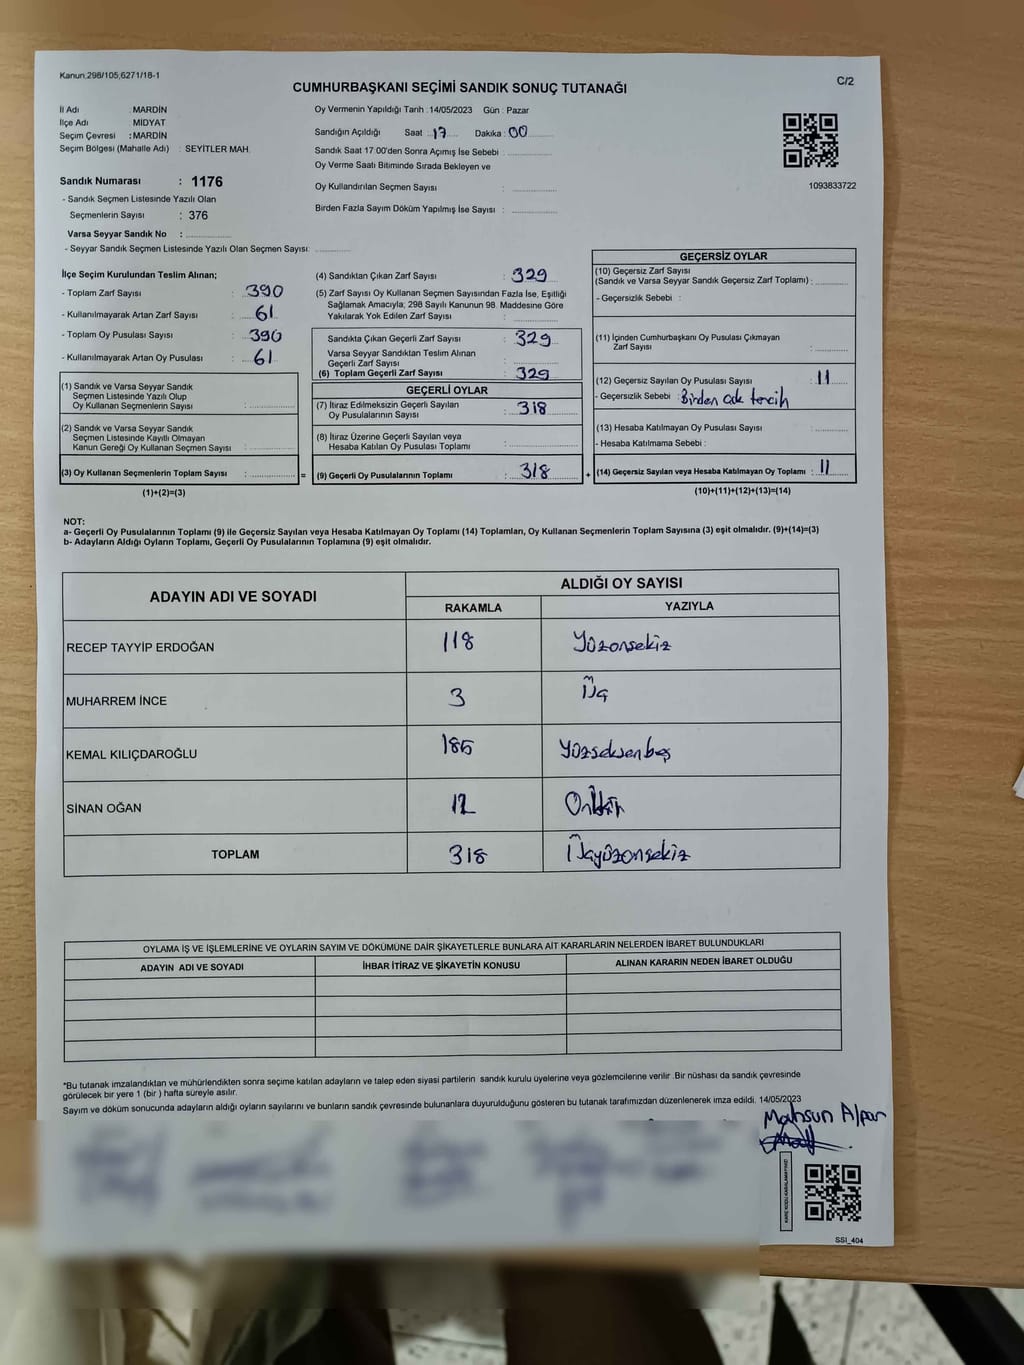 Kanun,298/105,6271/18-1
C/2
CUMHURBAŞKANI SEÇİMİ SANDIK SONUÇ TUTANAĞI
İl Adı : MARDİN
İlçe Adı : MİDYAT
Seçim Çevresi : MARDİN
Seçim Bölgesi (Mahalle Adı) : SEYİTLER MAH.
Oy Vermenin Yapıldığı Tarih : 14/05/2023 Gün : Pazar
Sandığın Açıldığı Saat : 17 Dakika : 00
Sandık Saat 17:00'den Sonra Açımış İse Sebebi :
Oy Verme Saati Bitiminde Sırada Bekleyen ve
Oy Kullandırılan Seçmen Sayısı :
Birden Fazla Sayım Döküm Yapılmış İse Sayısı :
1093833722
Sandık Numarası : 1176
- Sandık Seçmen Listesinde Yazılı Olan
Seçmenlerin Sayısı : 376
Varsa Seyyar Sandık No :
- Seyyar Sandık Seçmen Listesinde Yazılı Olan Seçmen Sayısı:
İlçe Seçim Kurulundan Teslim Alınan;
- Toplam Zarf Sayısı : 390
- Kullanılmayarak Artan Zarf Sayısı : 61
- Toplam Oy Pusulası Sayısı : 390
- Kullanılmayarak Artan Oy Pusulası : 61
(1) Sandık ve Varsa Seyyar Sandık
Seçmen Listesinde Yazılı Olup
Oy Kullanan Seçmenlerin Sayısı :
(2) Sandık ve Varsa Seyyar Sandık
Seçmen Listesinde Kayıtlı Olmayan
Kanun Gereği Oy Kullanan Seçmen Sayısı :
(3) Oy Kullanan Seçmenlerin Toplam Sayısı : =
(1)+(2)=(3)
(4) Sandıktan Çıkan Zarf Sayısı : 329
(5) Zarf Sayısı Oy Kullanan Seçmen Sayısından Fazla İse, Eşitliği
Sağlamak Amacıyla; 298 Sayılı Kanunun 98. Maddesine Göre
Yakılarak Yok Edilen Zarf Sayısı :
Sandıkta Çıkan Geçerli Zarf Sayısı : 329
Varsa Seyyar Sandıktan Teslim Alınan
Geçerli Zarf Sayısı :
(6) Toplam Geçerli Zarf Sayısı : 329
GEÇERLİ OYLAR
(7) İtiraz Edilmeksizin Geçerli Sayılan
Oy Pusulalarının Sayısı : 318
(8) İtiraz Üzerine Geçerli Sayılan veya
Hesaba Katılan Oy Pusulası Toplamı :
(9) Geçerli Oy Pusulalarının Toplamı : 318 +
GEÇERSİZ OYLAR
(10) Geçersiz Zarf Sayısı
(Sandık ve Varsa Seyyar Sandık Geçersiz Zarf Toplamı) :
- Geçersizlik Sebebi :
(11) İçinden Cumhurbaşkanı Oy Pusulası Çıkmayan
Zarf Sayısı :
(12) Geçersiz Sayılan Oy Pusulası Sayısı : 11
- Geçersizlik Sebebi : Birden çok tercih
(13) Hesaba Katılmayan Oy Pusulası Sayısı :
- Hesaba Katılmama Sebebi :
(14) Geçersiz Sayılan veya Hesaba Katılmayan Oy Toplamı : 11
(10)+(11)+(12)+(13)=(14)
NOT:
a- Geçerli Oy Pusulalarının Toplamı (9) ile Geçersiz Sayılan veya Hesaba Katılmayan Oy Toplamı (14) Toplamları, Oy Kullanan Seçmenlerin Toplam Sayısına (3) eşit olmalıdır. (9)+(14)=(3)
b- Adayların Aldığı Oyların Toplamı, Geçerli Oy Pusulalarının Toplamına (9) eşit olmalıdır.
ADAYIN ADI VE SOYADI ALDIĞI OY SAYISI
RAKAMLA YAZIYLA
RECEP TAYYİP ERDOĞAN 118 Yüzonsekiz
MUHARREM İNCE 3 Üç
KEMAL KILIÇDAROĞLU 185 Yüzseksenbeş
SİNAN OĞAN 12 Oniki
TOPLAM 318 Üçyüzonsekiz
OYLAMA İŞ VE İŞLEMLERİNE VE OYLARIN SAYIM VE DÖKÜMÜNE DAİR ŞİKAYETLERLE BUNLARA AİT KARARLARIN NELERDEN İBARET BULUNDUKLARI
ADAYIN ADI VE SOYADI İHBAR İTİRAZ VE ŞİKAYETİN KONUSU ALINAN KARARIN NEDEN İBARET OLDUĞU
*Bu tutanak imzalandıktan ve mühürlendikten sonra seçime katılan adayların ve talep eden siyasi partilerin sandık kurulu üyelerine veya gözlemcilerine verilir .Bir nüshası da sandık çevresinde
görülecek bir yere 1 (bir ) hafta süreyle asılır.
Sayım ve döküm sonucunda adayların aldığı oyların sayılarını ve bunların sandık çevresinde bulunanlara duyurulduğunu gösteren bu tutanak tarafımızdan düzenlenerek imza edildi. 14/05/2023
Mahsun Alpar
SSI_404